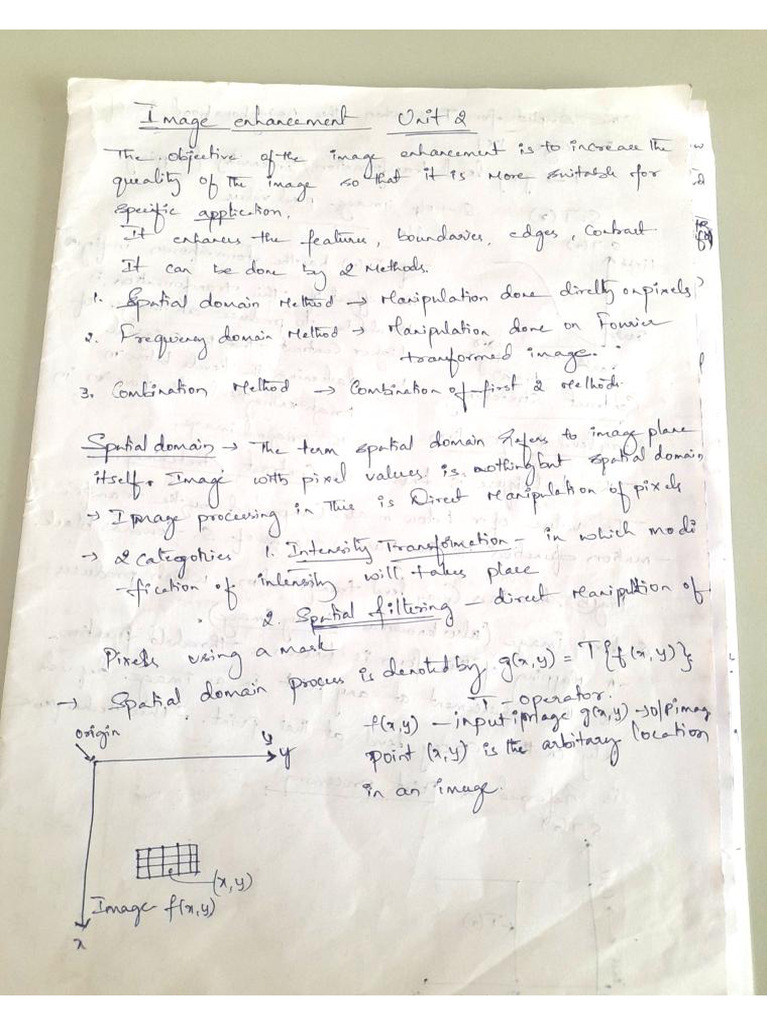 Image enhancement Unit 2
The objective of the image enhancement is to increase the
quality of the image so that it is more suitable for
specific application.
It enhances the features, boundaries, edges, contrast.
It can be done by 2 methods.
1. Spatial domain Method → Manipulation done directly on pixels
2. Frequency domain Method → Manipulation done on Fourier
transformed image.
3. Combination Method → Combination of first 2 methods
Spatial domain → The term spatial domain refers to image plane
itself. Image with pixel values is nothing but spatial domain
→ Image processing in this is Direct Manipulation of pixels
→ 2 categories 1. Intensity Transformation - in which modi
-fication of intensity will takes place
2. Spatial filtering - direct manipulation of
Pixels using a mask
→ Spatial domain process is denoted by g(x,y) = T{f(x,y)}.
T - operator.
f(x,y) - input image g(x,y) → o/p imag
point (x,y) is the arbitrary location
in an image.
origin
y
y
(x,y)
Image f(x,y)
x